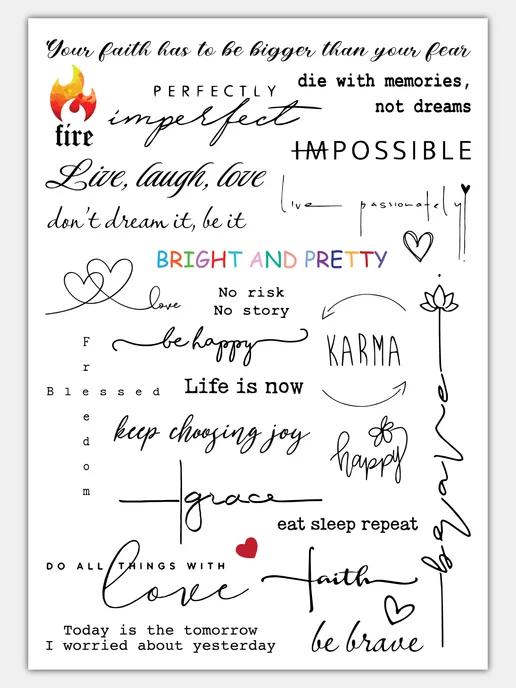 Your faith has to be bigger than your fear
fire
PERFECTLY
imperfect
die with memories,
not dreams
IMPOSSIBLE
Live, laugh, love
live passionately
don't dream it, be it
BRIGHT AND PRETTY
love
No risk
No story
be happy
KARMA
Freedom
Blessed
Life is now
keep choosing joy
happy
brave
grace
eat sleep repeat
DO ALL THINGS WITH
love
faith
Today is the tomorrow
I worried about yesterday
be brave